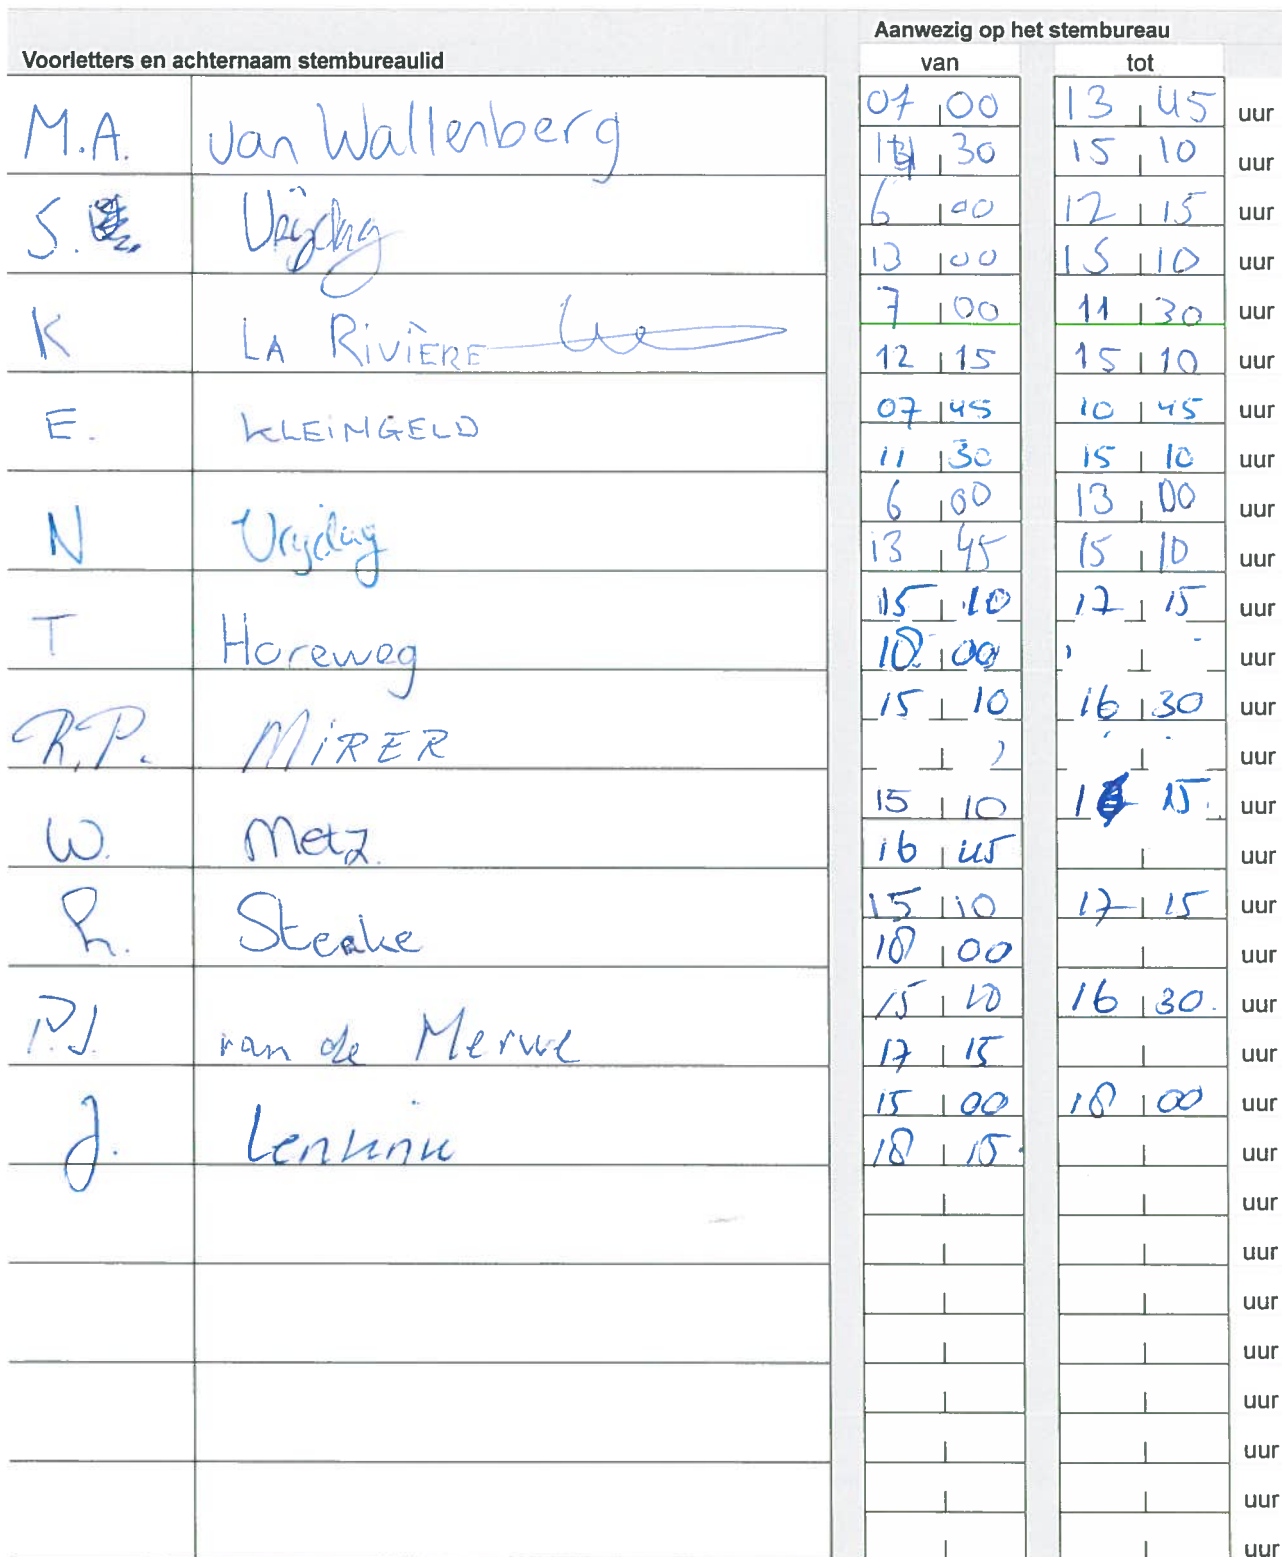 Aanwezig op het stembureau
Voorletters en achternaam stembureaulid van tot
M.A. van Wallenberg 07 00 13 45 uur
30 15 10 uur
S. Vrijdag 6 00 12 15 uur
13 00 15 10 uur
K LA RIVIÈRE 7 00 11 30 uur
12 15 15 10 uur
E. KLEINGELD 07 45 10 45 uur
11 30 15 10 uur
N Vrijdag 6 00 13 00 uur
13 45 15 10 uur
T Horeweg 15 10 17 15 uur
18 00 uur
R.P. MIRER 15 10 16 30 uur
uur
W. Metz. 15 10 15. uur
16 45 uur
R. Steake 15 10 17 15 uur
18 00 uur
P.J. van de Merwe 15 10 16 30. uur
17 15 uur
J. 15 00 18 00 uur
18 15. uur
uur
uur
uur
uur
uur
uur
uur
uur